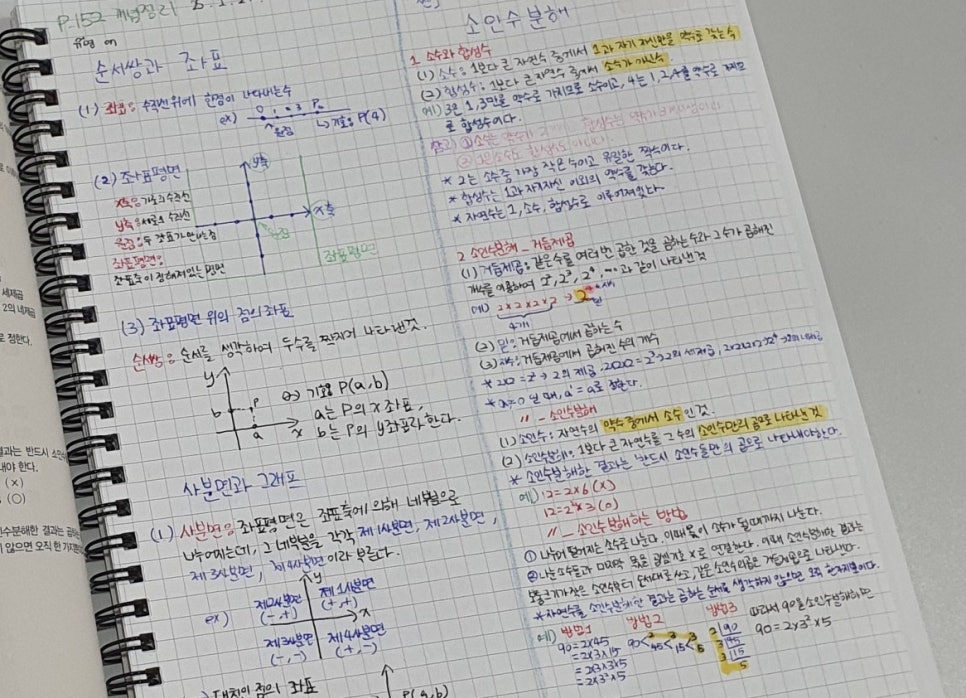 P.152 개념정리
유형 on
순서쌍과 좌표
(1) 좌표: 수직선위에 한점이 나타내는수
ex)
원점
기호: P(4)
(2) 좌표평면
x축: 가로의 수직선
y축: 세로의 수직선
원점: 두 좌표가 만나는점
좌표평면:
좌표축이 정해져있는 평면
y축
x축
원점
좌표평면
(3) 좌표평면 위의 점의 좌표
순서쌍: 순서를 생각하여 두수를 짝지어 나타낸것.
y
b
P
a
x
⇒ 기호 P(a,b)
a는 P의 x좌표,
b는 P의 y좌표라 한다.
사분면과 그래프
(1) 사분면: 좌표평면은 좌표축에 의해 네부분으로
나누어지는데, 그 네부분을 각각 제1사분면, 제2사분면,
제3사분면, 제4사분면이라 부른다.
ex)
y
x
제2사분면 제1사분면
(-,+) (+,+)
제3사분면 제4사분면
(-,-) (+,-)
점의 좌표
P(a,b)
소인수분해
1 소수와 합성수
(1) 소수: 1보다 큰 자연수 중에서 1과 자기 자신만을 약수로 갖는 수
(2) 합성수: 1보다 큰 자연수 중에서 소수가 아닌수.
예) 3은 1, 3만을 약수로 가지므로 소수이고, 4는 1, 2, 4를 약수로 가지므
로 합성수이다.
* 2는 소수중 가장 작은 수이고 유일한 짝수이다.
* 합성수는 1과 자기자신 이외의 약수를 갖는다.
* 자연수는 1, 소수, 합성수로 이루어져있다.
2 소인수분해 _ 거듭제곱
(1) 거듭제곱: 같은수를 여러번 곱한 것을 곱하는 수와 그 수가 곱해진
개수를 이용하여 2², 2³, 2⁴, ...과 같이 나타낸것
예) 2×2×2×2 → 2⁴
4개
지수
밑
(2) 밑: 거듭제곱에서 곱하는 수
(3) 지수: 거듭제곱에서 곱해진 수의 개수
* 2×2 = 2² → 2의 제곱, 2×2×2 = 2³ → 2의 세제곱, 2×2×2×2 = 2⁴ → 2의 네제곱
〃 _ 소인수분해
(1) 소인수: 자연수의 약수 중에서 소수인것.
(2) 소인수분해: 1보다 큰 자연수를 그 수의 소인수만의 곱으로 나타낸 것
* 소인수분해한 결과는 반드시 소인수들만의 곱으로 나타내야한다.
예) 12 = 2×6 (×)
12 = 2²×3 (○)
〃 _ 소인수분해하는 방법
① 나누어 떨어지는 소수로 나눈다. 이때 몫이 소수가 될때까지 나눈다.
② 나눈 소수들과 마지막 몫을 곱셈기호 ×로 연결한다. 이때 소인수분해한 결과는
보통 크기가 작은 소인수부터 순서대로 쓰고, 같은 소인수의 곱은 거듭제곱으로 나타낸다.
* 자연수를 소인수분해한 결과는 곱하는 순서를 생각하지 않으면 오직 한가지뿐이다.
예) 방법1 방법2 방법3
90 = 2×45
= 2×3×15
= 2×3×3×5
= 2×3²×5
90 2 45 3 15 3 5
2 90
3 45
3 15
5
따라서 90을 소인수분해하면
90 = 2×3²×5
세제곱
2의 네제곱
로 정한다.
결과는 반드시 소인
내야 한다.
(×)
(○)
인수분해한 결과는 곱하
지 않으면 오직 한가지